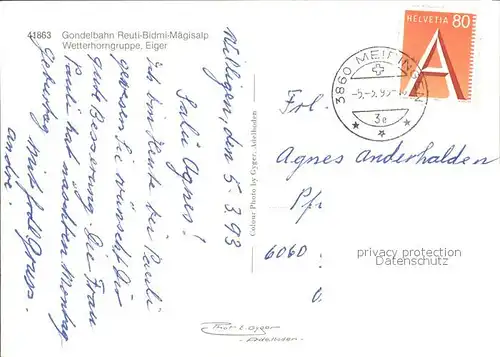 41863 Gondelbahn Reuti-Bidmi-Mägisalp
Wetterhorngruppe, Eiger
Willigen, den 5.3.93
Salü Agnes!
Ich bin Heute bei Pauli
gewesen Sie wünscht Dir
gute Besserung. Die Frau
Pauli hat nächsten Montag
Geburtstag
mit frdl. Gruss.
André.
Colour Photo by Gyger, Adelboden
HELVETIA 80
A
3860 MEIRINGEN
-5.-3.93-
3e
Frl.
Agnes Anderhalden
Pfr
6060
privacy protection
Datenschutz
Phot. E. Gyger
Adelboden